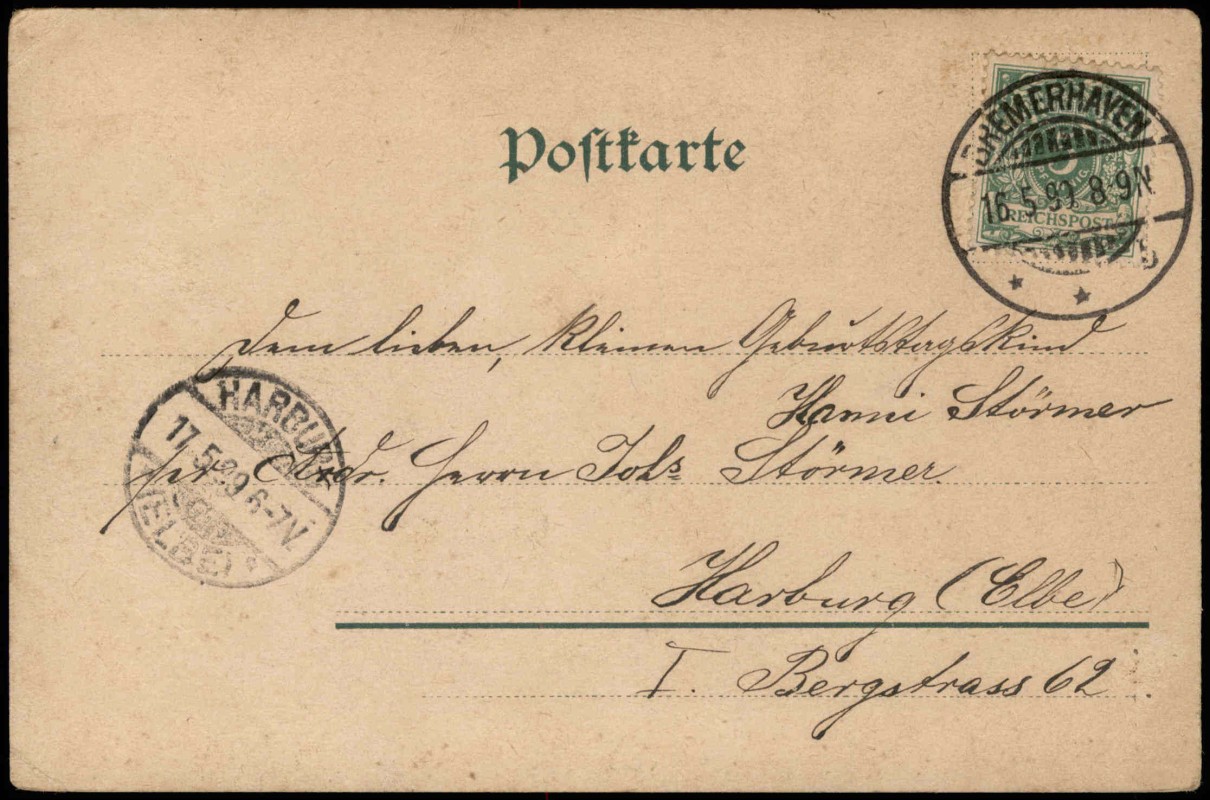 Postkarte
BREMERHAVEN
16.5.99. 8-9N
REICHSPOST
Dem lieben, kleinen Geburtstagskind
Hanni Störmer
pr. Ardr. Herrn Johs Störmer.
HARBURG
17.5.99 6-7V.
(ELBE)
Harburg (Elbe)
I. Bergstrass 62.